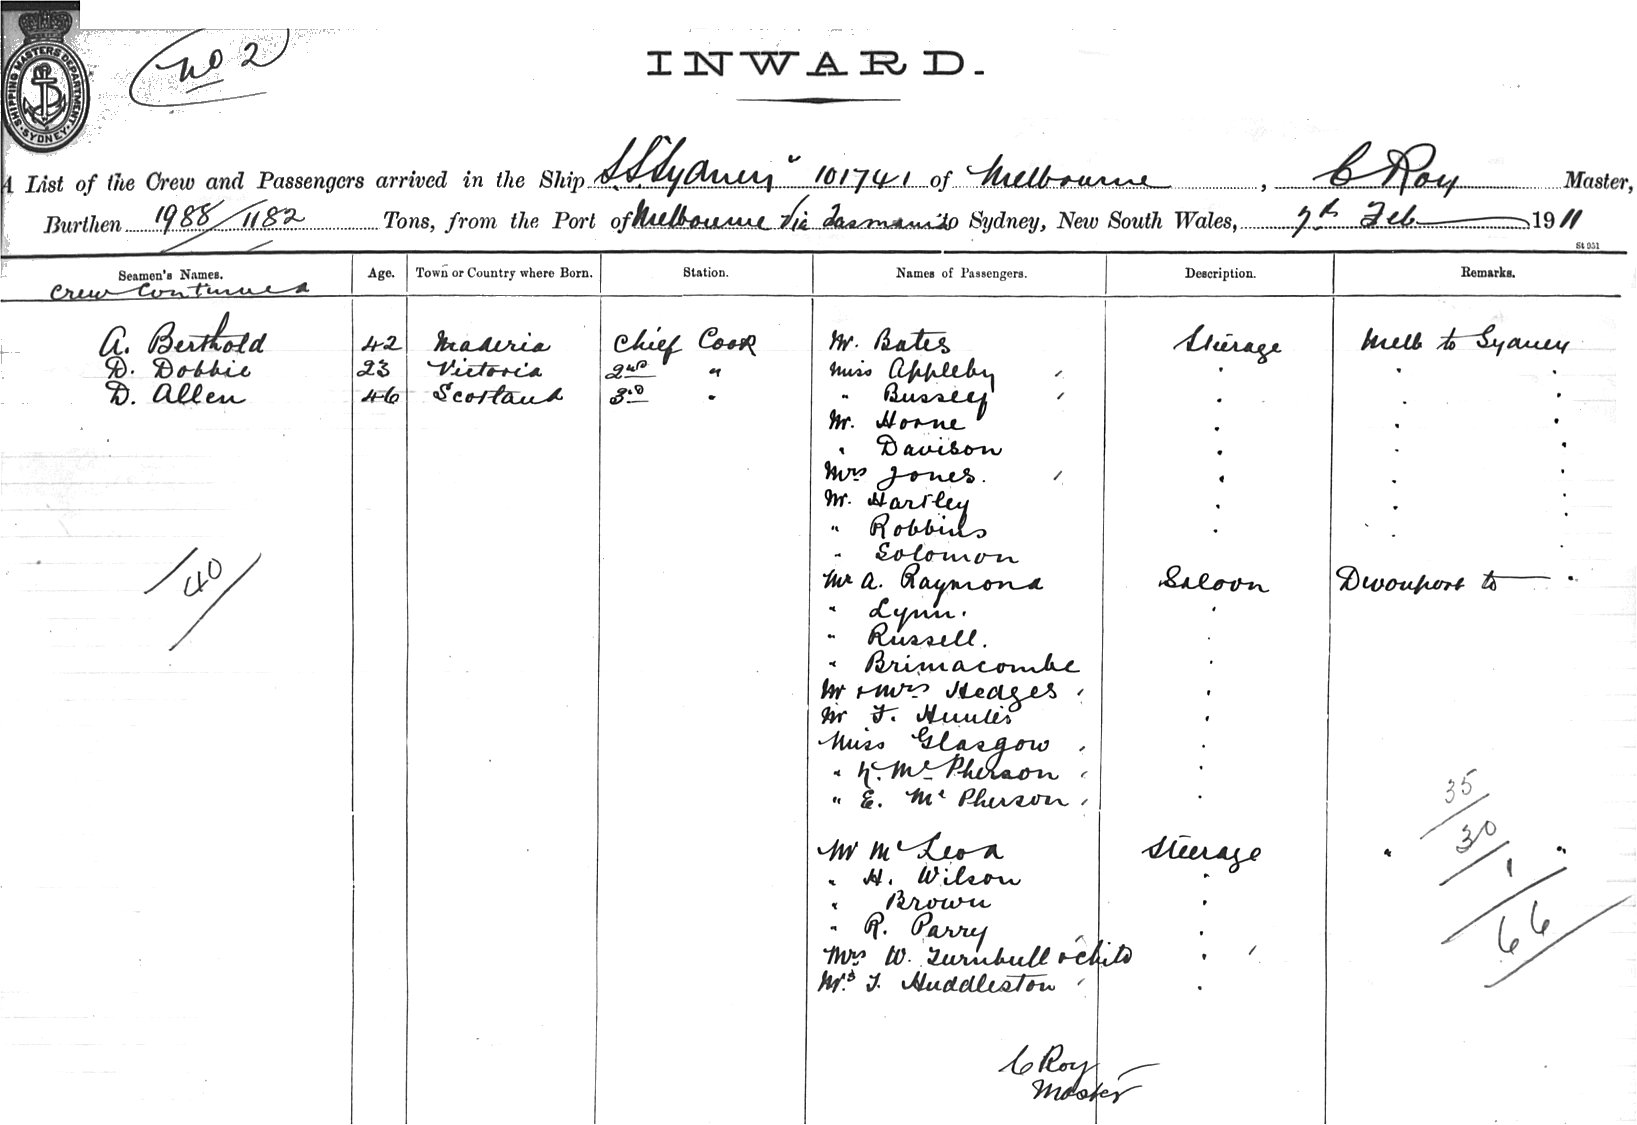 SHIPPING MASTERS DEPARTMENT · SYDNEY ·
No 2
INWARD.
A List of the Crew and Passengers arrived in the Ship S.S. "Sydney" 101741 of Melbourne, C Roy Master,
Burthen 1988/1182 Tons, from the Port of Melbourne Via Tasmania to Sydney, New South Wales, 7th Feb 1911
St 931
Seamen's Names. Age. Town or Country where Born. Station. Names of Passengers. Description. Remarks.
Crew Continued
A. Berthold 42 Maderia Chief Cook Mr. Bates Steerage Melb to Sydney
D. Dobbie 23 Victoria 2nd " Miss Appleby " " "
D. Allen 46 Scotland 3rd " " Bussey " " "
Mr. Horne " " "
" Davison " " "
Mrs Jones. " " "
Mr. Hartley " " "
" Robbins " " "
" Solomon "
Mr A. Raymond Saloon Devonport to "
" Lynn. "
" Russell. "
" Brimacombe "
Mr & Mrs Hedges "
Mr F. Hunter "
Miss Glasgow "
" K. McPherson "
" E. McPherson "
Mr McLeod Steerage " "
" H. Wilson "
" Brown "
" R. Parry "
Mrs W. Turnbull & child "
Mrs T. Huddleston "
40
35
30
1
66
C Roy
Master